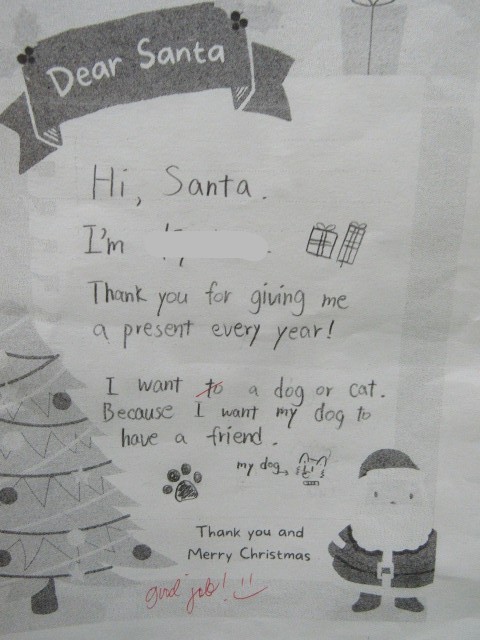 Dear Santa
Hi, Santa.
I'm
Thank you for giving me
a present every year!
I want to a dog or cat.
Because I want my dog to
have a friend.
my dog
Thank you and
Merry Christmas
good job!